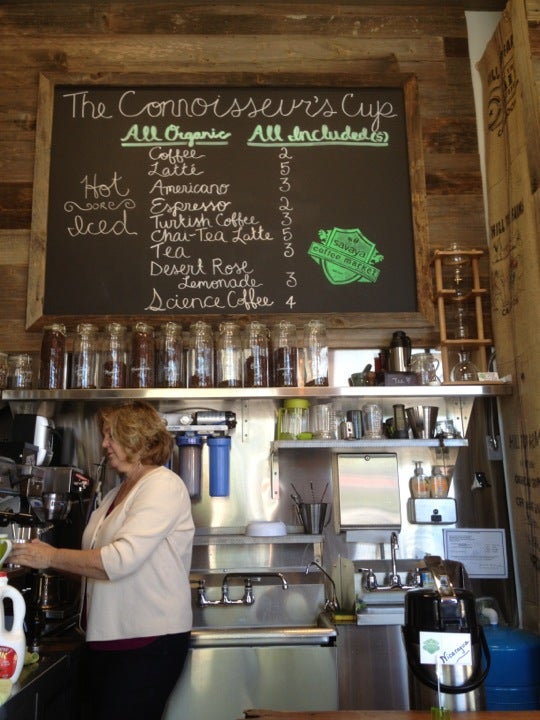 The Connoisseur's Cup
All Organic All Included($)
Coffee 2
Latte 5
Americano 3
Espresso 2
Turkish Coffee 3
Chai-Tea Latte 5
Tea 3
Desert Rose
Lemonade 3
Science Coffee 4
Hot
OR
Iced
savaya
coffee market
Nicaragua